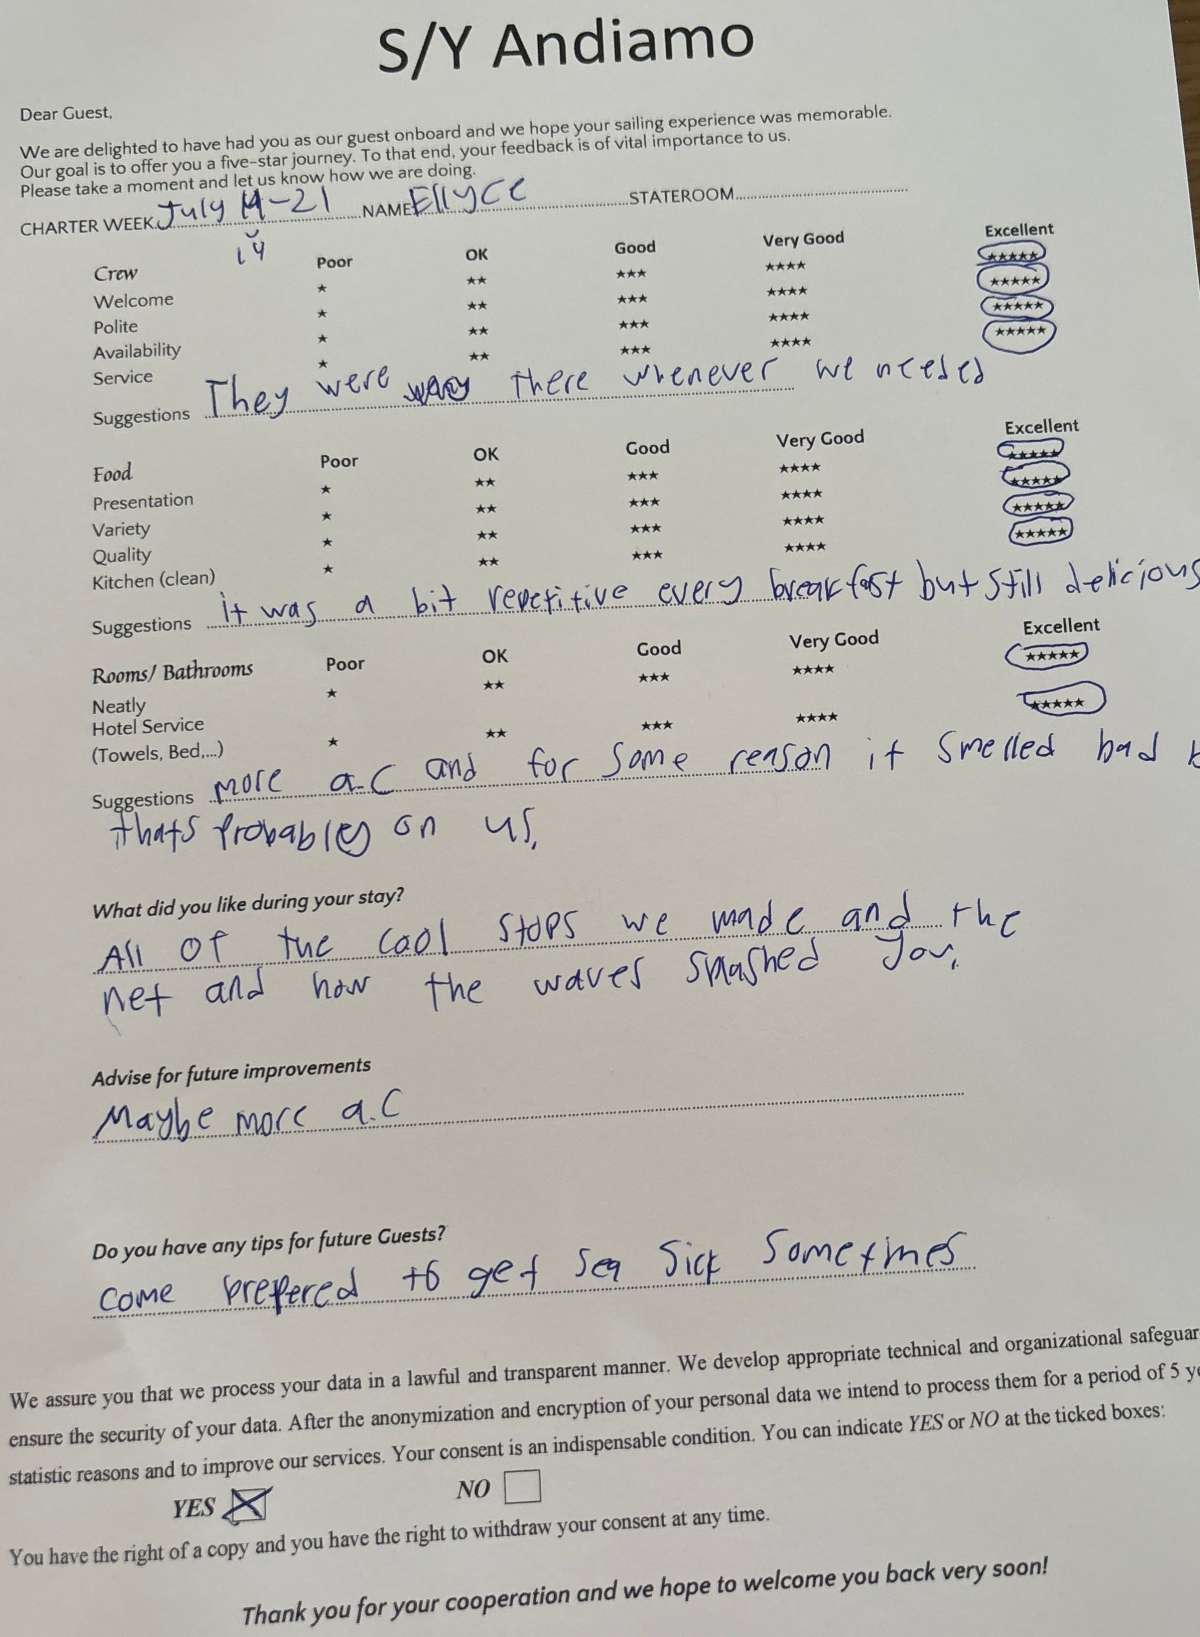 S/Y Andiamo
Dear Guest,
We are delighted to have had you as our guest onboard and we hope your sailing experience was memorable.
Our goal is to offer you a five-star journey. To that end, your feedback is of vital importance to us.
Please take a moment and let us know how we are doing.
CHARTER WEEK July 14-21 NAME Ellyce STATEROOM
14
Crew Poor OK Good Very Good Excellent
Welcome ★ ★★ ★★★ ★★★★ ★★★★★
Polite ★ ★★ ★★★ ★★★★ ★★★★★
Availability ★ ★★ ★★★ ★★★★ ★★★★★
Service ★ ★★ ★★★ ★★★★ ★★★★★
Suggestions They were there whenever we needed
Food Poor OK Good Very Good Excellent
Presentation ★ ★★ ★★★ ★★★★ ★★★★★
Variety ★ ★★ ★★★ ★★★★ ★★★★★
Quality ★ ★★ ★★★ ★★★★ ★★★★★
Kitchen (clean) ★ ★★ ★★★ ★★★★ ★★★★★
Suggestions it was a bit repetitive every breakfast but still delicious
Rooms/ Bathrooms Poor OK Good Very Good Excellent
Neatly ★ ★★ ★★★ ★★★★ ★★★★★
Hotel Service
(Towels, Bed,...) ★ ★★ ★★★ ★★★★ ★★★★★
Suggestions more a.c and for some reason it smelled bad b
thats probabley on us.
What did you like during your stay?
All of the cool stops we made and the
net and how the waves splashed you.
Advise for future improvements
Maybe more a.c
Do you have any tips for future Guests?
come prepered to get sea sick sometimes
We assure you that we process your data in a lawful and transparent manner. We develop appropriate technical and organizational safeguar
ensure the security of your data. After the anonymization and encryption of your personal data we intend to process them for a period of 5 ye
statistic reasons and to improve our services. Your consent is an indispensable condition. You can indicate YES or NO at the ticked boxes:
YES NO
You have the right of a copy and you have the right to withdraw your consent at any time.
Thank you for your cooperation and we hope to welcome you back very soon!